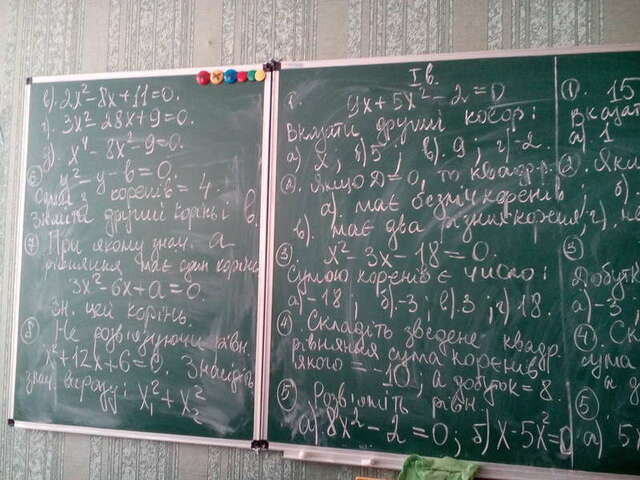 в). 2x²-8x+11=0.
г). 3x²-28x+9=0.
д). x⁴-8x²-9=0.
⑥ y²-y-в=0.
Сума коренів = 4.
Знайти другий корінь і в.
⑦ При якому знач. а
рівняння має один корінь
3x²-6x+a=0.
Зн. цей корінь.
⑧ Не розв'язуючи рівн.
x²+12x+6=0. Знайдіть
знач. виразу: x₁²+x₂²
Iв.
1. 9x+5x²-2=0
Вказати другий коеф:
а) x; б) 5; в). 9; г) -2.
②. Якщо D=0, то квадр.
а). має безліч коренів;
в). має два різних корені; г).
③. x²-3x-18=0.
Сумою коренів є число:
а) -18; б) -3; в). 3; г) 18.
④. Складіть зведене квадр.
рівняння сума коренів
якого = -10, а добуток = 8.
⑤ Розв'яжіть рівн.
а) 8x²-2=0; б) x-5x²=0
①. 15
Вказати
а) 1
②. Якщо
б)
③
Добуток
а) -3
④. Скл
сума
а д
⑤
а) 5x